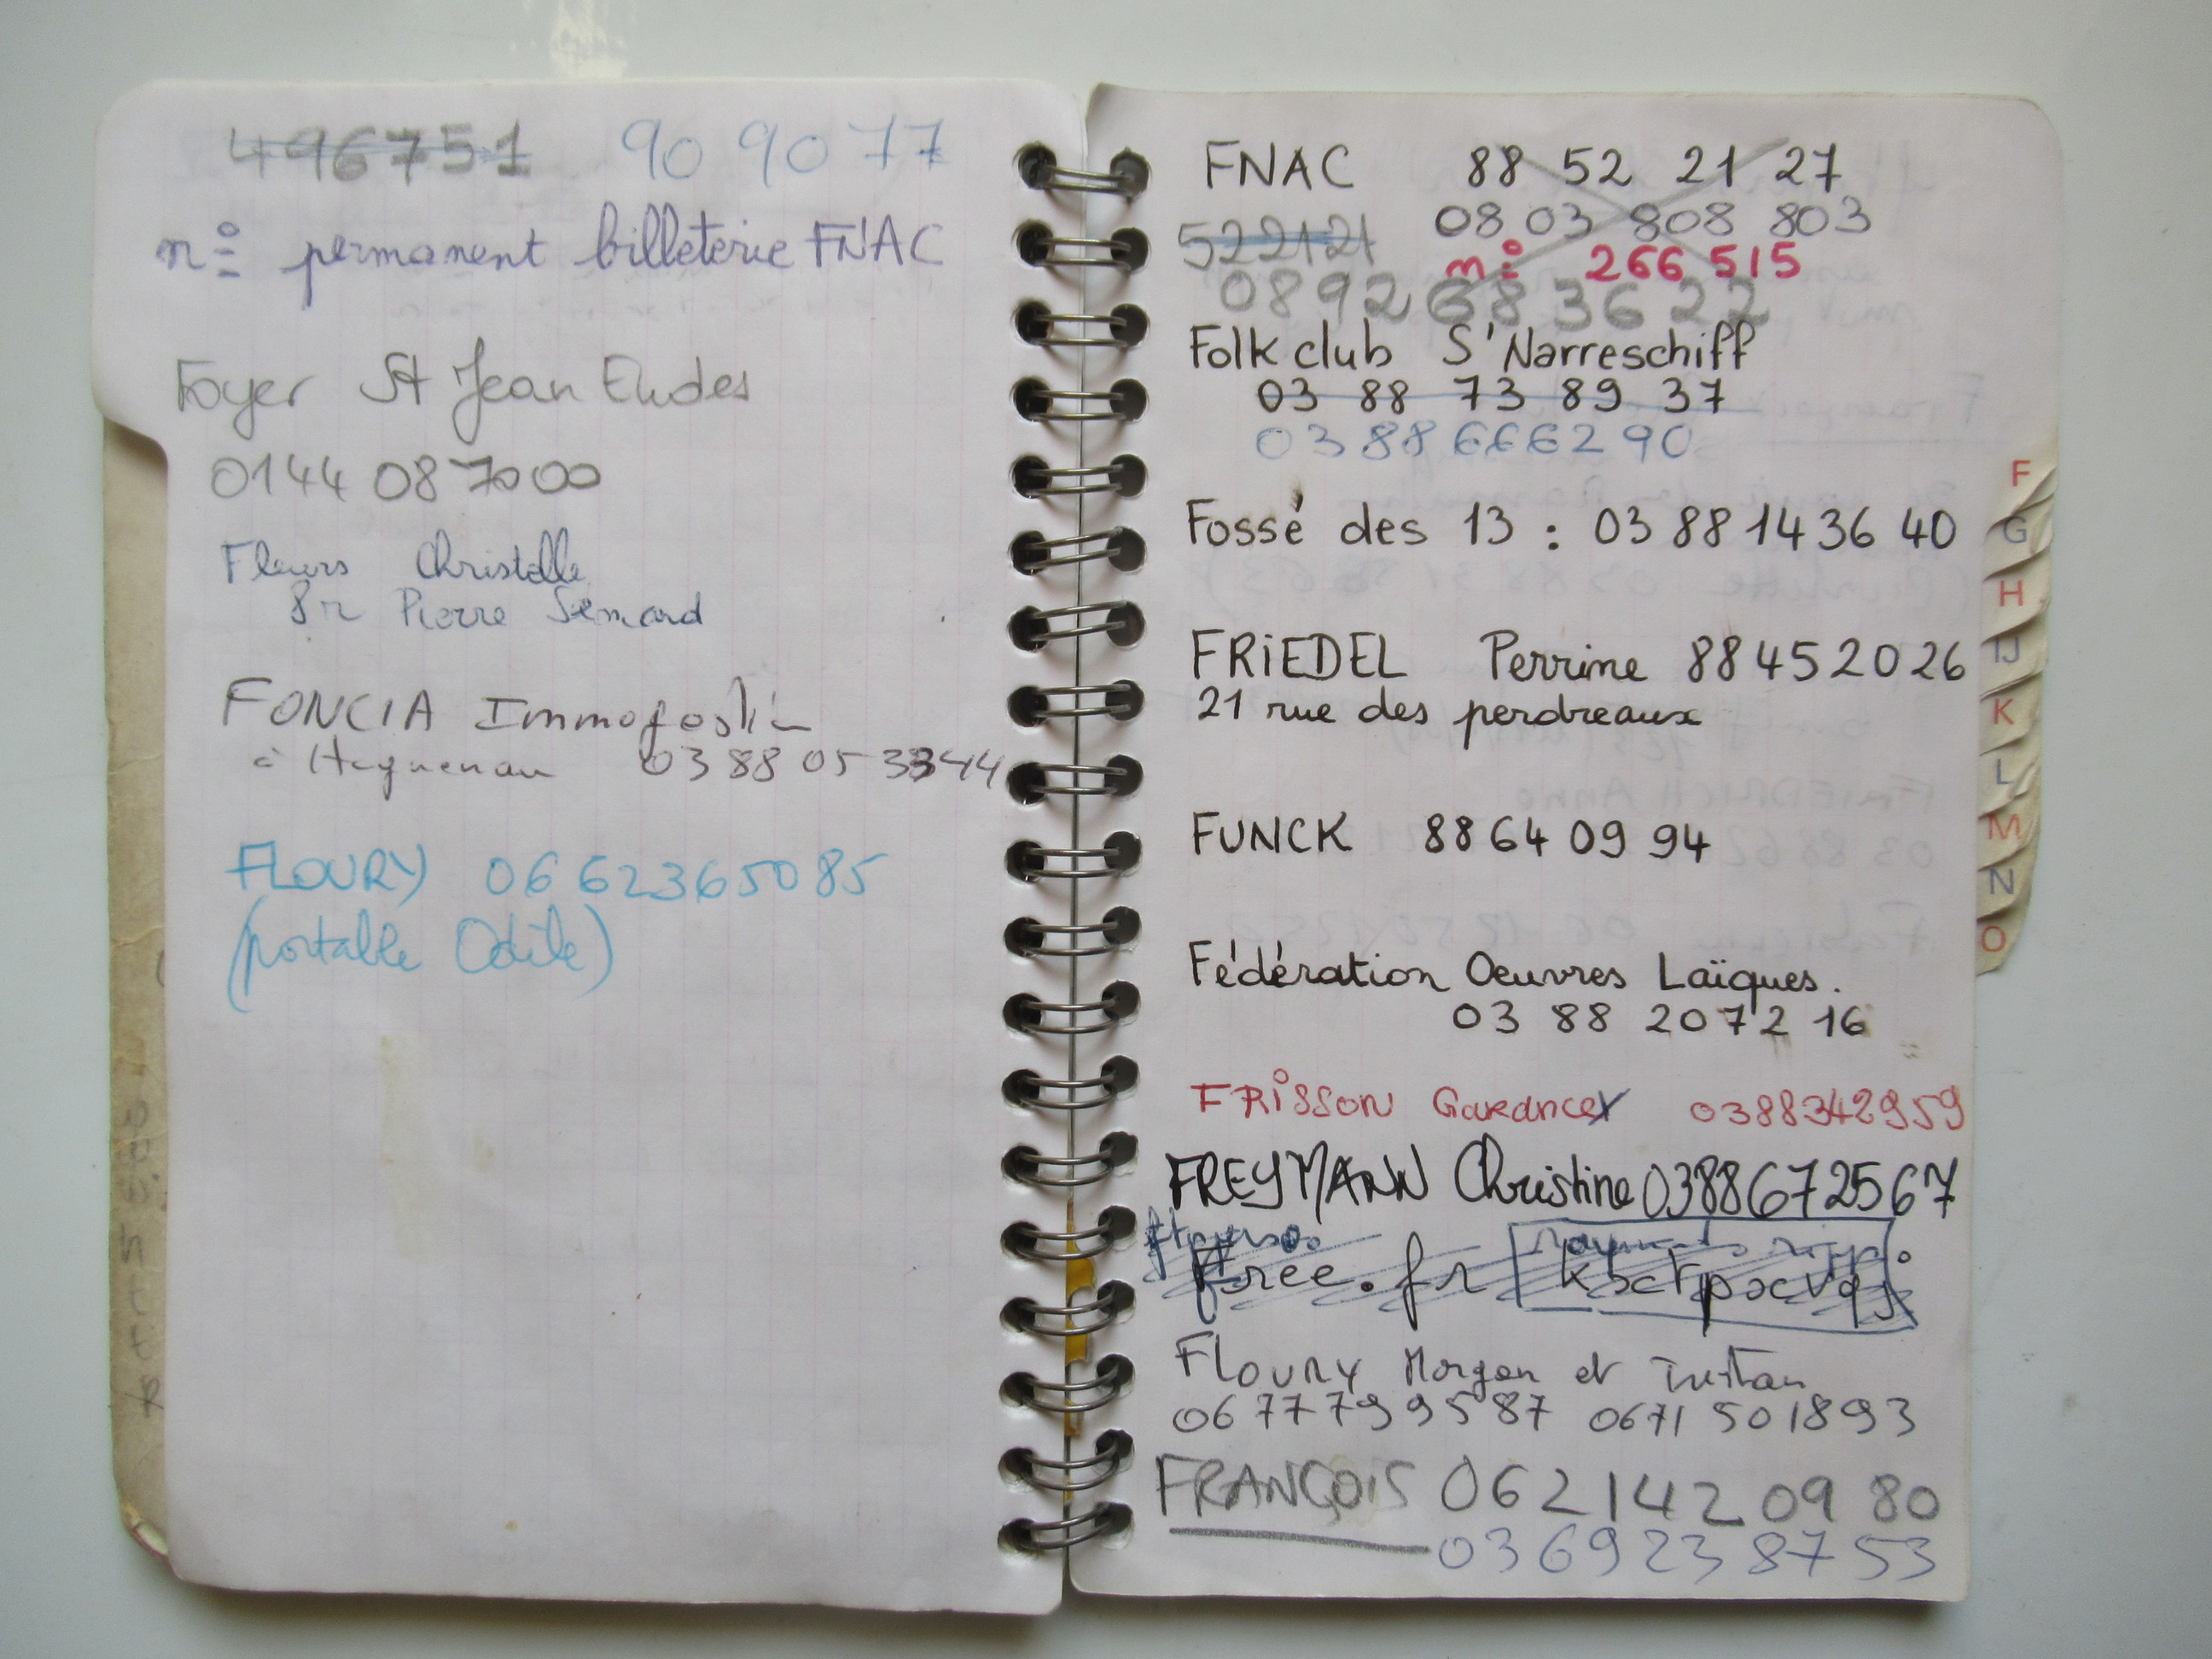 496751 90 90 77
n° permanent billeterie FNAC
Foyer St Jean Eudes
0144 08 70 00
Fleurs Christelle
8 r Pierre Semard
FONCIA Immogestin
à Haguenau 03 88 05 3344
FLOURY 06 62365085
(portable Odile)
FNAC 88 52 21 27
08 03 808 803
522121
n° 266 515
0892 683622
Folk club S'Narreschiff
03 88 73 89 37
03 88 666290
Fossé des 13 : 03 88 14 36 40
FRiEDEL Perrine 88 45 20 26
21 rue des perdreaux
FUNCK 88 64 09 94
Fédération Oeuvres Laïques.
03 88 2072 16
FRiSSON Garance 0388342959
FREYMANN Christine 0388672567
free.fr
Floury Morgan et Tristan
06 77 79 95 87 0671 501893
FRANÇOIS 062142 09 80
03 69 23 87 53
F
G
H
IJ
K
L
M
N
O